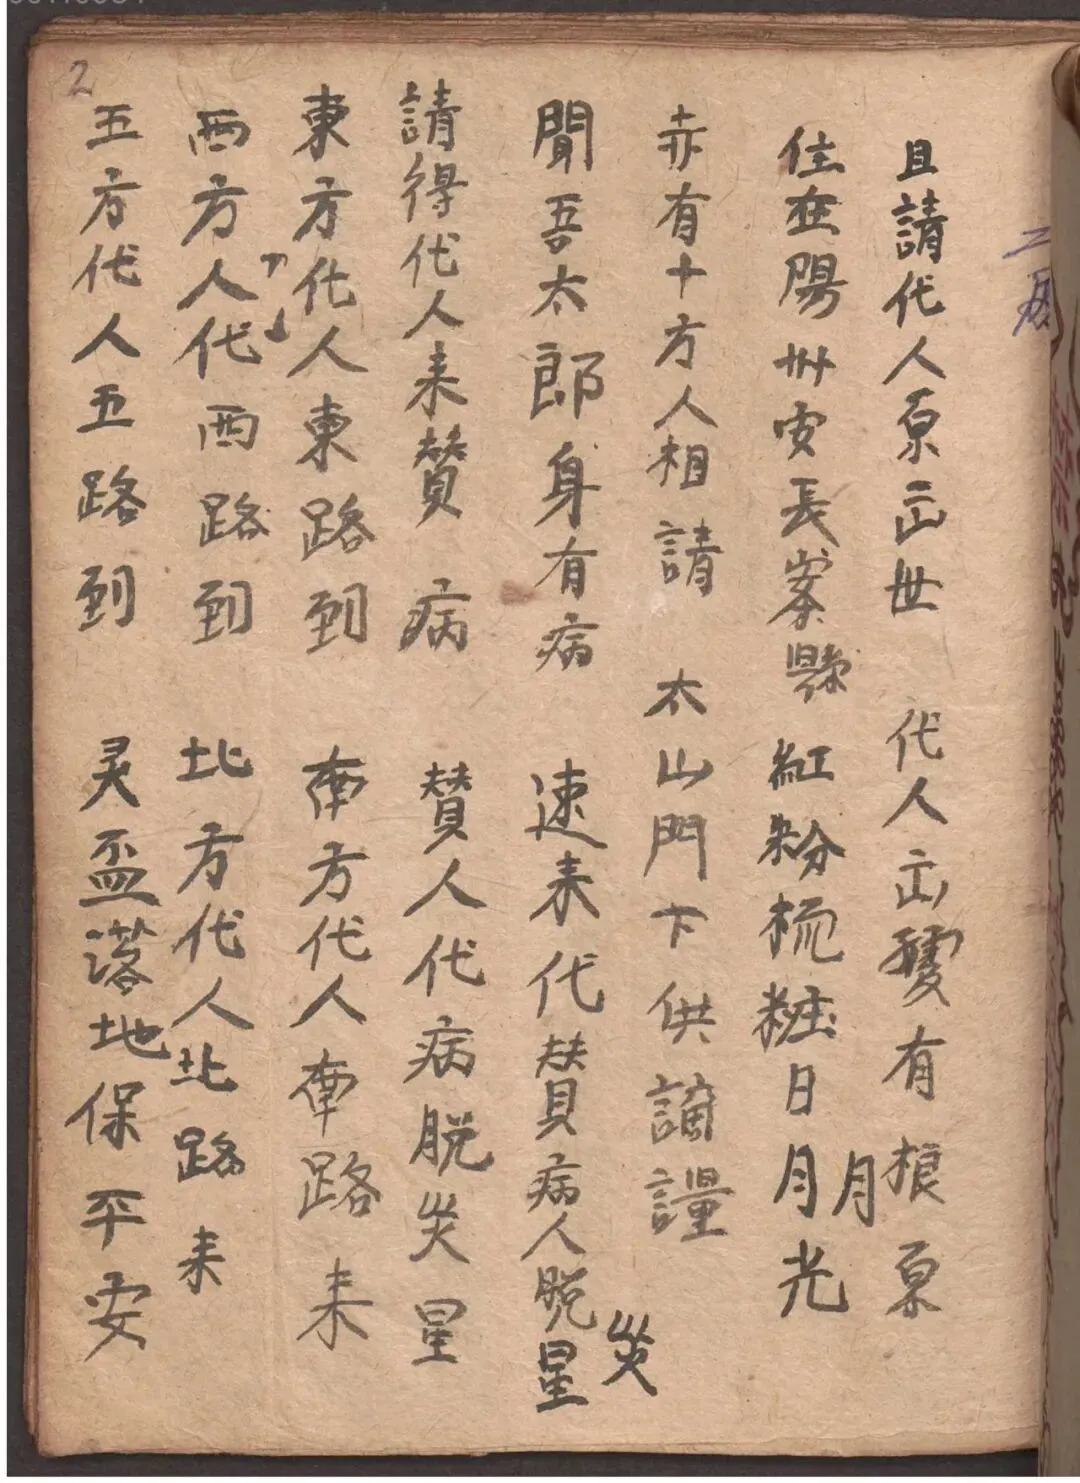 2
且請代人原出世 代人出䕶有根原
住在陽州安長寨縣 紅粉梳粧日月月光
赤有十方人相請 太山門下供謫
聞吾太郎身有病 速耒代賛病人脱災星
請得代人耒賛病 賛人代病脱災星
東方代人東路到 南方代人南路耒
西方人代西路到 北方代人北路耒
五方代人五路到 灵盃落地保平安